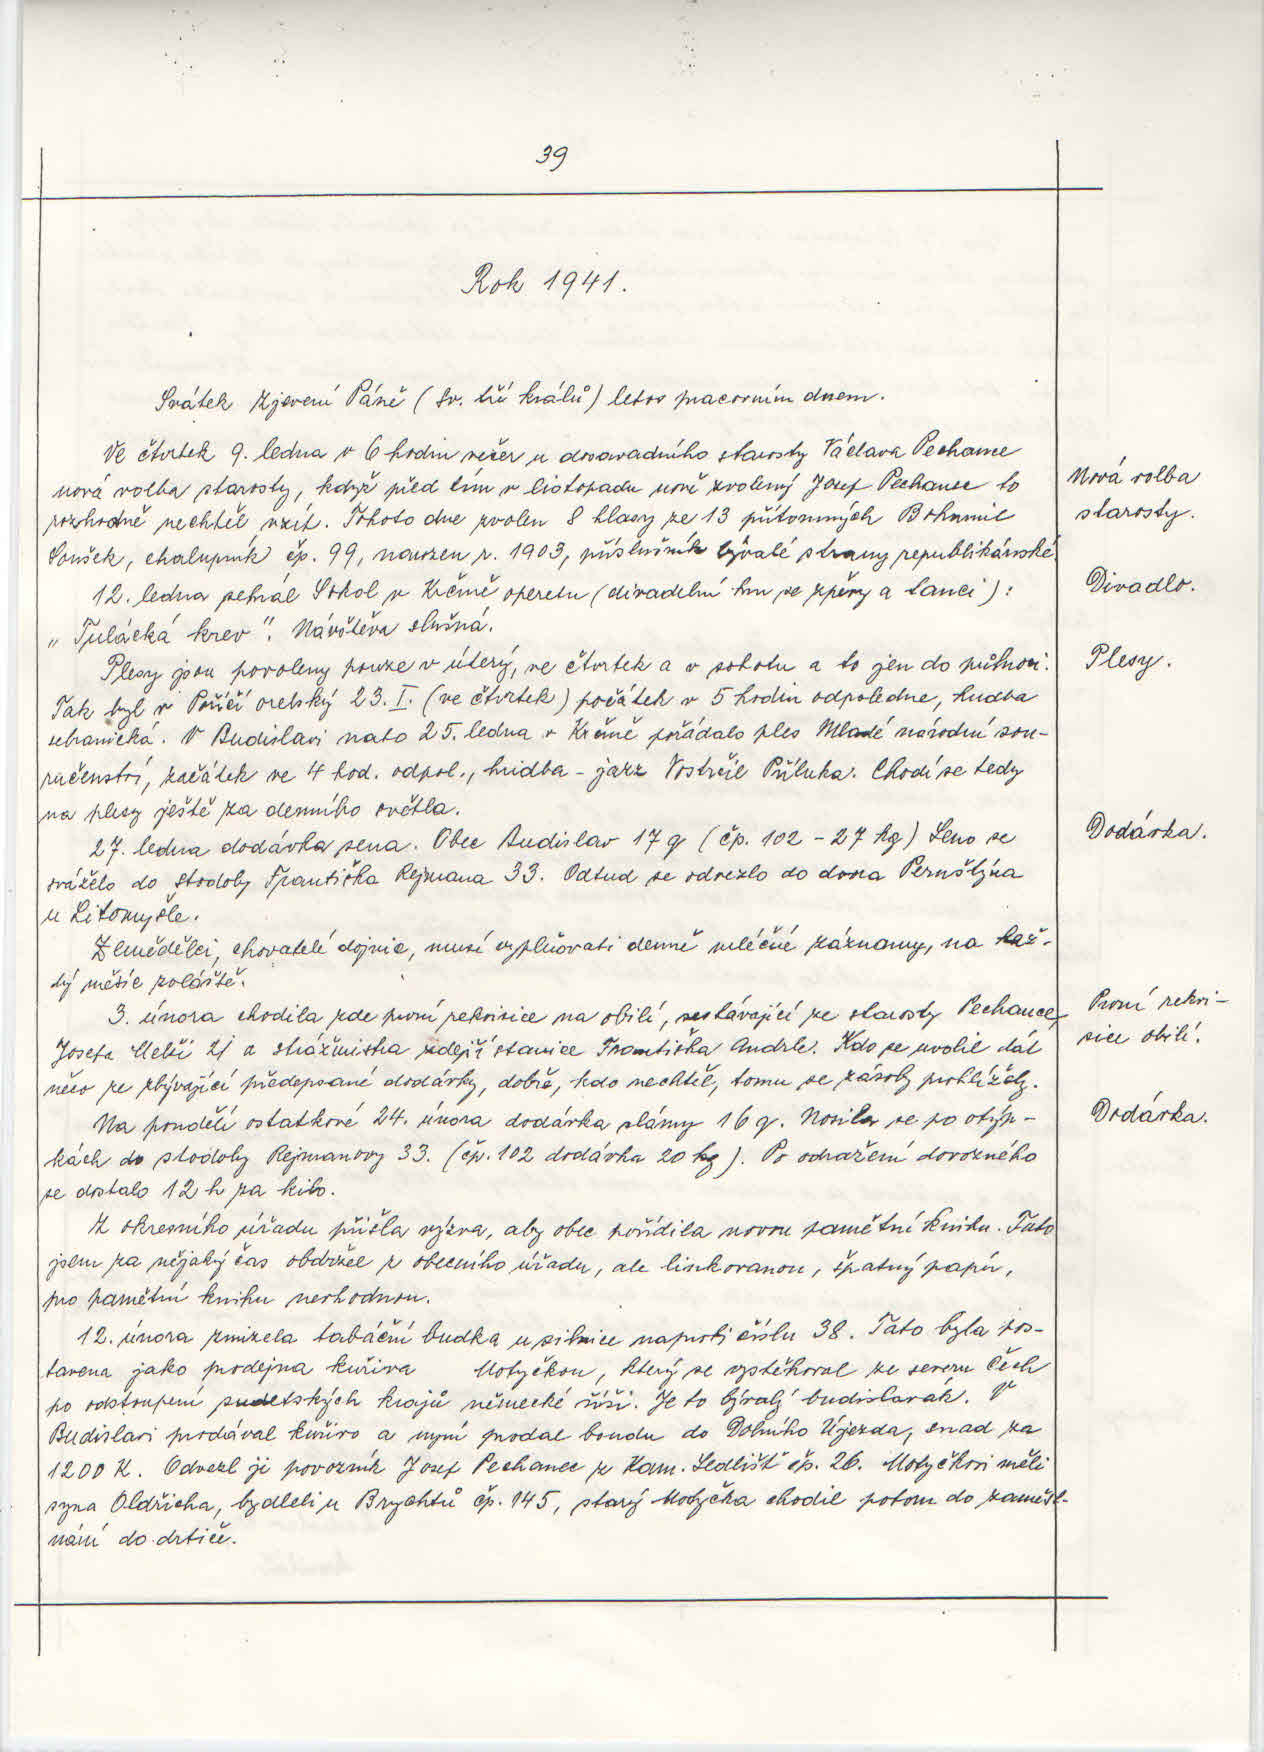 39
Rok 1941.
Svátek Zjevení Páně (Sv. tří králů) letos pracovním dnem.
Ve čtvrtek 9. ledna v 6 hodin večer u dosavadního starosty Václava Pechance
nová volba starosty, když před tím v listopadu nově zvolený Josef Pechanec to
rozhodně nechtěl vzít. Tohoto dne zvolen 8 hlasy ze 13 přítomných Bohumil
Soušek, chalupník čp. 99, narozen r. 1903, příslušník bývalé strany republikánské.
Nová volba
starosty.
12. ledna sehrál Sokol v Krčmě operetu (divadelní hru se zpěvy a tanci):
„Tulácká krev". Návštěva slušná.
Divadlo.
Plesy jsou povoleny pouze v úterý, ve čtvrtek a v sobotu a to jen do půlnoci.
Tak byl v Poříčí orelský 23. I. (ve čtvrtek) počátek v 5 hodin odpoledne, hudba
sebranická. V Budislavi nato 25. ledna v Krčmě pořádalo ples Mladé národní sou-
ručenství, začátek ve 4 hod. odpol., hudba - jazz Vostrčil Příluka. Chodí se tedy
na plesy ještě za denního světla.
Plesy.
27. ledna dodávka sena. Obec Budislav 17 q (čp. 102 - 27 kg) Seno se
sváželo do stodoly Františka Rejmana 33. Odtud se odvezlo do dvora Pernštýna
u Litomyšle.
Dodávka.
Zemědělci, chovatelé dojnic, musí vyplňovati denně mléčné záznamy, na kaž-
dý měsíc zvláště.
3. února chodila zde první rekvisice na obilí, sestávající ze starosty Pechance,
Josefa 21 a strážmistra zdejší stanice Františka Andrle. Kdo se uvolil dát
něco ze zbývající předepsané dodávky, dobře, kdo nechtěl, tomu se zásoby prohlížely.
První rekvi-
sice obilí.
Na pondělí ostatkové 24. února dodávka slámy 16 q. Nosila se po otýp-
kách do stodoly Rejmanovy 33. (čp. 102 dodávka 20 kg). Po odražení dovozného
se dostalo 12 h za kilo.
Dodávka.
Z okresního úřadu přišla výzva, aby obec pořídila novou pamětní knihu. Tuto
jsem za nějaký čas obdržel z obecního úřadu, ale linkovanou, špatný papír,
pro pamětní knihu nevhodnou.
12. února zmizela tabáční budka u silnice naproti číslu 38. Tato byla pos-
tavena jako prodejna kuřiva Motyčkou, který se vystěhoval ze severu Čech
po odstoupení sudetských krajů německé říši. Je to bývalý budislavák. V
Budislavi prodával kuřivo a nyní prodal boudu do Dolního Újezda, snad za
1200 K. Odvezl ji povozník Josef Pechanec z Kam. Sedlišť čp. 26. Motyčkovi měli
syna Oldřicha, bydleli u Brychtů čp. 145, starý Motyčka chodil potom do zaměst-
nání do drtiče.